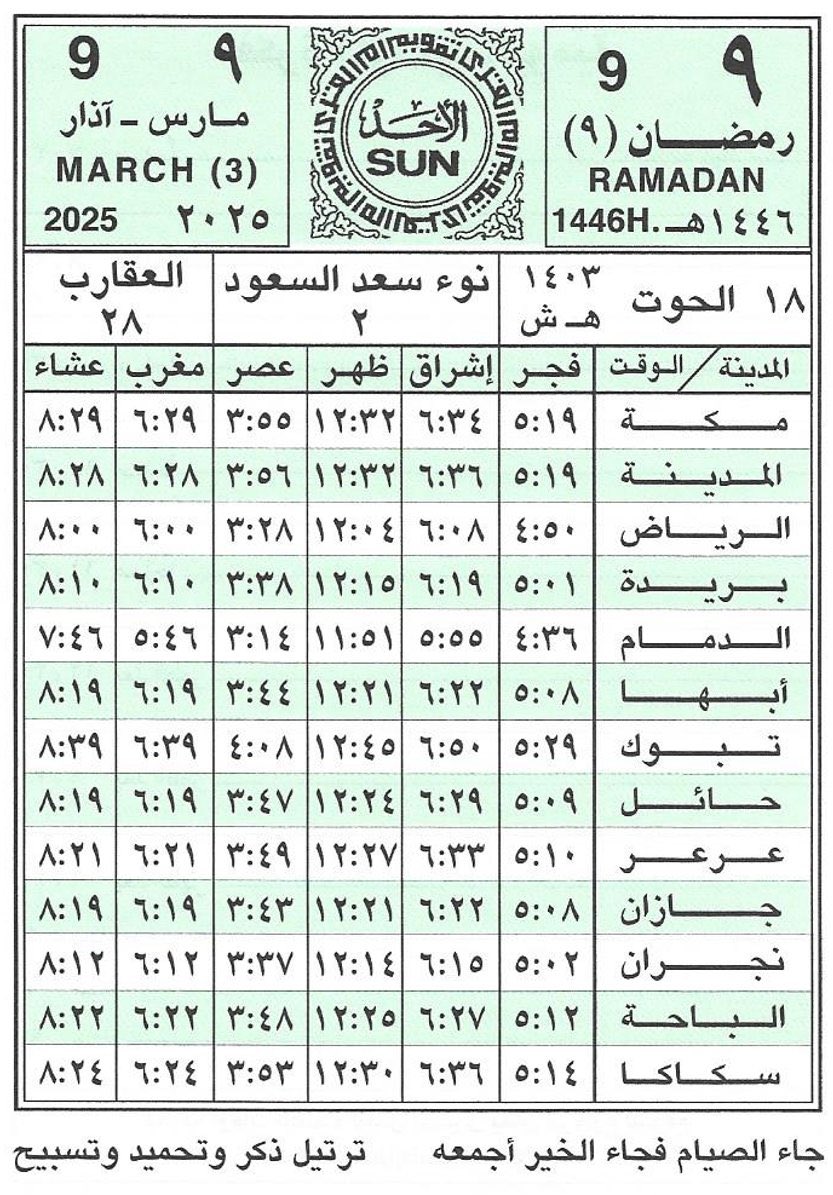 ٩ 9
رمضان (٩)
RAMADAN
1446H. ١٤٤٦هـ
الأحد
SUN
9 ٩
مارس - آذار
MARCH (3)
2025 ٢٠٢٥
١٨ الحوت ١٤٠٣ هـ ش
نوء سعد السعود ٢
العقارب ٢٨
المدينة / الوقت فجر إشراق ظهر عصر مغرب عشاء
مكة ٥:١٩ ٦:٣٤ ١٢:٣٢ ٣:٥٥ ٦:٢٩ ٨:٢٩
المدينة ٥:١٩ ٦:٣٦ ١٢:٣٢ ٣:٥٦ ٦:٢٨ ٨:٢٨
الرياض ٤:٥٠ ٦:٠٨ ١٢:٠٤ ٣:٢٨ ٦:٠٠ ٨:٠٠
بريدة ٥:٠١ ٦:١٩ ١٢:١٥ ٣:٣٨ ٦:١٠ ٨:١٠
الدمام ٤:٣٦ ٥:٥٥ ١١:٥١ ٣:١٤ ٥:٤٦ ٧:٤٦
أبها ٥:٠٨ ٦:٢٢ ١٢:٢١ ٣:٤٤ ٦:١٩ ٨:١٩
تبوك ٥:٢٩ ٦:٥٠ ١٢:٤٥ ٤:٠٨ ٦:٣٩ ٨:٣٩
حائل ٥:٠٩ ٦:٢٩ ١٢:٢٤ ٣:٤٧ ٦:١٩ ٨:١٩
عرعر ٥:١٠ ٦:٣٣ ١٢:٢٧ ٣:٤٩ ٦:٢١ ٨:٢١
جازان ٥:٠٨ ٦:٢٢ ١٢:٢١ ٣:٤٣ ٦:١٩ ٨:١٩
نجران ٥:٠٢ ٦:١٥ ١٢:١٤ ٣:٣٧ ٦:١٢ ٨:١٢
الباحة ٥:١٢ ٦:٢٧ ١٢:٢٥ ٣:٤٨ ٦:٢٢ ٨:٢٢
سكاكا ٥:١٤ ٦:٣٦ ١٢:٣٠ ٣:٥٣ ٦:٢٤ ٨:٢٤
جاء الصيام فجاء الخير أجمعه ترتيل ذكر وتحميد وتسبيح